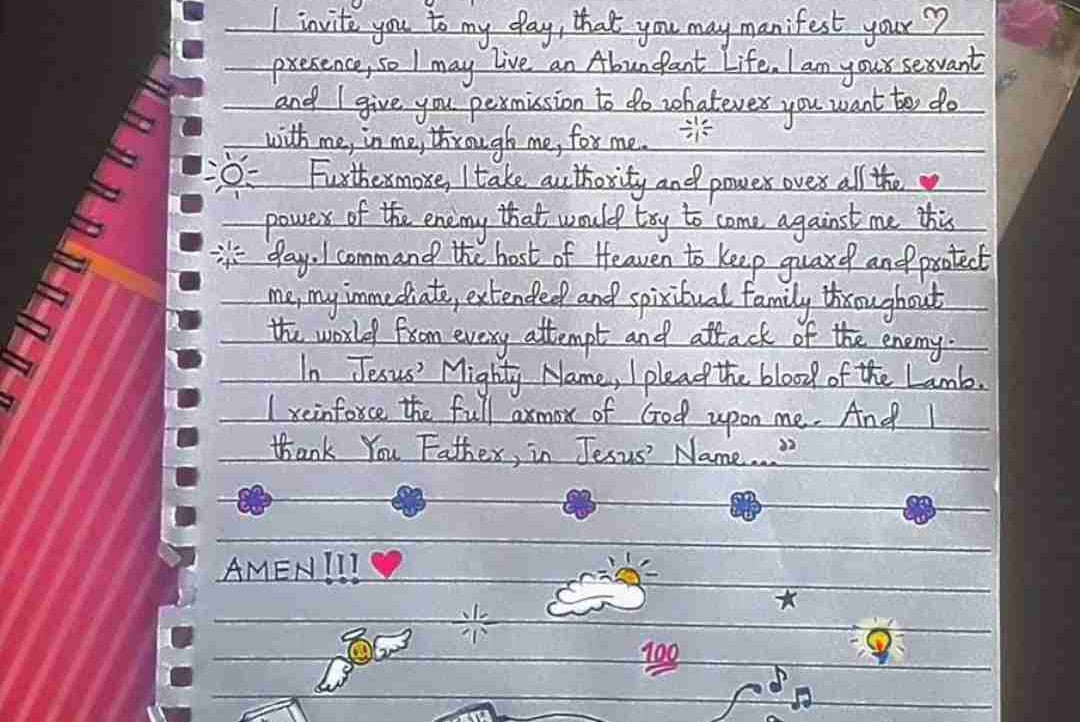 I invite you to my day, that you may manifest your
presence, so I may live an Abundant Life. I am your servant
and I give you permission to do whatever you want to do
with me, in me, through me, for me.
Furthermore, I take authority and power over all the
power of the enemy that would try to come against me this
day. I command the host of Heaven to keep guard and protect
me, my immediate, extended and spiritual family throughout
the world from every attempt and attack of the enemy.
In Jesus' Mighty Name, I plead the blood of the Lamb.
I reinforce the full armor of God upon me. And I
thank You Father, in Jesus' Name..."
AMEN!!!
100